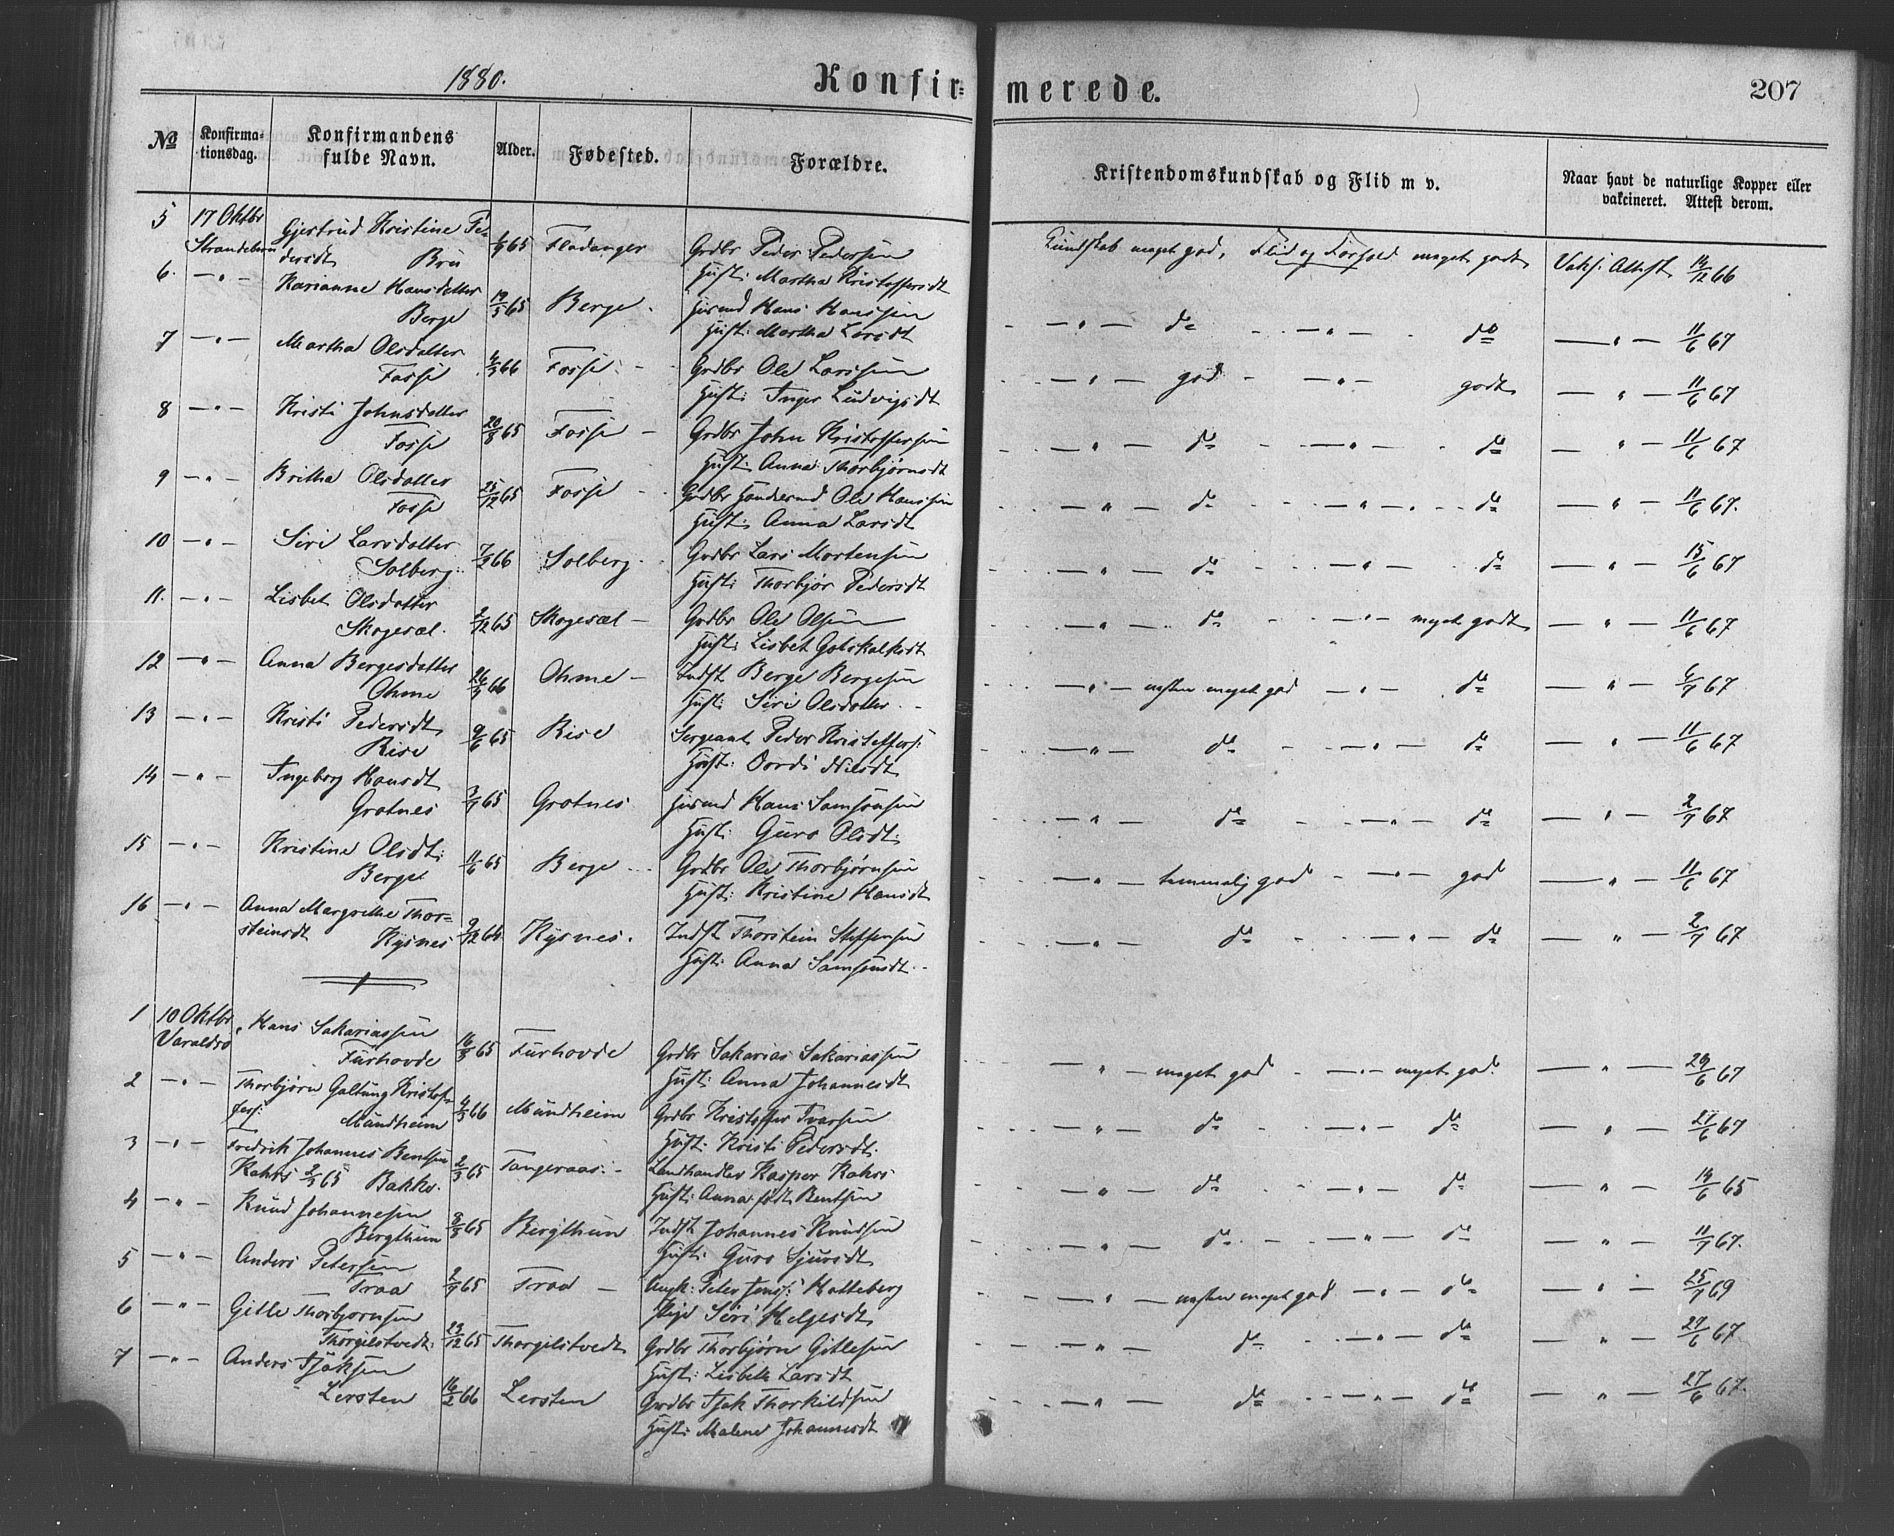 1880.
Konfir-
merede.
207
No
Konfirma-
tionsdag.
Konfirmandens
fulde Navn.
Alder.
Fødested.
Forældre.
Kristendomskundskab og Flid m v.
Naar havt de naturlige Kopper eller
vakcineret. Attest derom.
5 17 Oktbr Gjertrud Kristine Pe-
Strandebarm dersdt Bru 65 Fladanger Grdbr Peder Pedersen
Hust: Martha Kristoffersdt
Kundskab meget god, Flid og Forhold meget godt Vaks: Attest 14/12 66
6. — " — Karianne Hansdatter
Berge 19/5 65 Berge. Husmd Hans Hanssen
Hust: Martha Larsdt
— " — do — " — do — " — 11/6 67
7 — " — Martha Olsdatter
Fosse 4/3 66 Fosse - Grdbr Ole Larssen
Hust: Inger Ludvigsdt
— " — god — " — godt — " — 11/6 67
8 — " — Kristi Johnsdatter
Fosse 20/8 65 Fosse — Grdbr John Kristoffersen
Hust: Anna Thorbjørnsdt
— " — do — " — do — " — 11/6 67
9 — " — Britha Olsdatter
Fosse 25/12 65 Fosse Grdbr Ole Hanssen
Hust: Anna Larsdt
— " — do — " — do — " — 11/6 67.
10 — " — Siri Larsdatter
Solberg. 7/3 66 Solberg. Grdbr Lars Mortensen
Hust: Thorbjør Pedersdt
— " — do — " — do — " — 15/6 67
11. — " — Lisbet Olsdatter
Skogesæl. 2/12 65 Skogesæl — Grdbr Ole Olsen
Hust: Lisbet Gotskalksdt
— " — do — " — meget godt — " — 11/6 67
12 — " — Anna Bergesdatter
Ohme 26/3 66 Ohme — Indst Berge Bergesen
Hust: Siri Olsdatter
— " — næsten meget god — " — do — " — 6/7 67
13 — " — Kristi Pedersdt
Rise 9/6 65 Rise Sergeant Peder Kristoffers:
Hust: Oordi Nilsdt
— " — do — " — do — " — 11/6 67
14 — " — Ingeborg Hansdt
Grotnes 3/7 65 Grotnes Husmd Hans Samsonsen
Hust: Guro Olsdt.
— " — do — " — do — " — 2/7 67
15 — " — Kristine Olsdt:
Berge 11/6 65 Berge Grdbr Ole Thorbjørnsen
Hust: Kristine Hansdt
— " — temmelig god — " — god — " — 11/6 67
16 — " — Anna Margrethe Thor-
steinsdt Kysnes Kysnes. Indst Thorstein Steffensen
Hust: Anna Samsonsdt
— " — do — " — do — " — 2/7 67
1 10 Oktbr Hans Sakariassen
Varaldsø Furhovde 16/3 65 Furhovde Grdbr Sakarias Sakariassen
Hust: Anna Johannesdt
— " — meget god — " — meget god. — " — 29/6 67
2 — " — Thorbjørn Galtung Kristof-
fers: Mundheim 4/3 66 Mundheim Grdbr Kristoffer Ivarsen
Hust: Kristi Pedersdt.
— " — do — " — do — " — 27/6 67
3 — " — Fredrik Johannes Bentsen
Rahrs 2/3 65 Bakke. 2/3 65 Tangeraas: — Landhandler Kasper Rahrs
Hust: Anna født Bentsen
— " — do — " — do — " — 14/6 65
4 — " — Knud Johannesen
Bergthun 8/3 65 Bergthun Indst Johannes Knudsen
Hust: Guro Sjursdt
— " — do — " — do — " — 11/7 67.
5 — " — Anders Petersen
Traa 65 Traa — Ungk: Peter Jens: Hatteberg
Pige Siri Helgesdt
— " — næsten meget god — " — do — " — 25/7 69
6 — " — Gitle Thorbjørnsen
Thorgilstvedt. 23/12 65 Thorgilstvedt Grdbr Thorbjørn Gitlesen
Hust: Lisbeth Larsdt
— " — do — " — do — " — 27/6 67.
7 — " — Anders Tjøksen
Lersten 16/2 66 Lersten Grdbr Tjøk Thorkildsen
Hust: Malene Johannesdt
— " — do — " — do — " — 27/6 67.